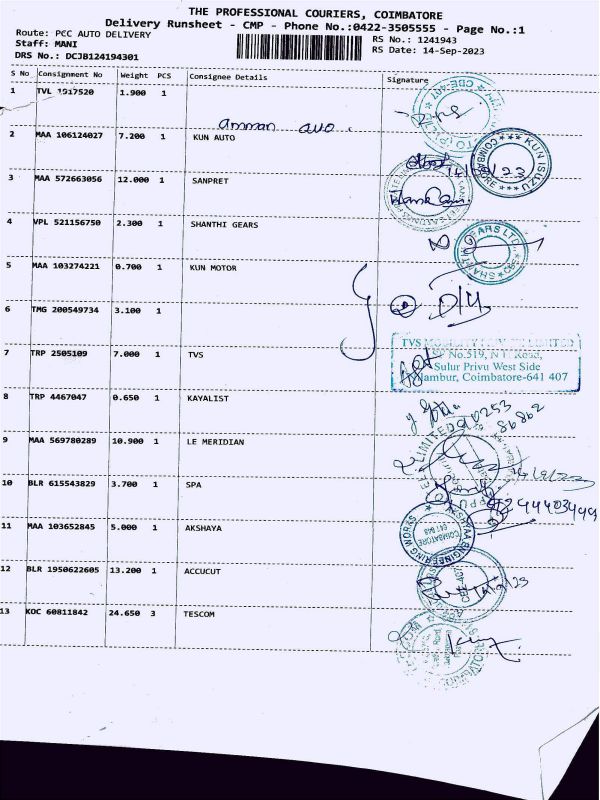 THE PROFESSIONAL COURIERS, COIMBATORE
Delivery Runsheet - CMP - Phone No.:0422-3505555 - Page No.:1
Route: PCC AUTO DELIVERY RS No.: 1241943
Staff: MANI RS Date: 14-Sep-2023
DRS No.: DCJB124194301
S No Consignment No Weight PCS Consignee Details Signature
1 TVL 1917520 1.900 1
2 MAA 106124027 7.200 1 KUN AUTO
3 MAA 572663056 12.000 1 SANPRET
4 VPL 521156750 2.300 1 SHANTHI GEARS
5 MAA 103274221 0.700 1 KUN MOTOR
6 TMG 200549734 3.100 1
TVS MOBILITY PRIVATE LIMITED
SF No.519, N.T. Road,
7 TRP 2505109 7.000 1 TVS
Sulur Privu West Side
Coimbatore-641 407
8 TRP 4467047 0.650 1 KAYALIST
90253
86862
9 MAA 569780289 10.900 1 LE MERIDIAN
10 BLR 615543829 3.700 1 SPA
11 MAA 103652845 5.000 1 AKSHAYA
12 BLR 1950622605 13.200 1 ACCUCUT
13 KOC 60811842 24.650 3 TESCOM
KUN ISUZU
COIMBATORE